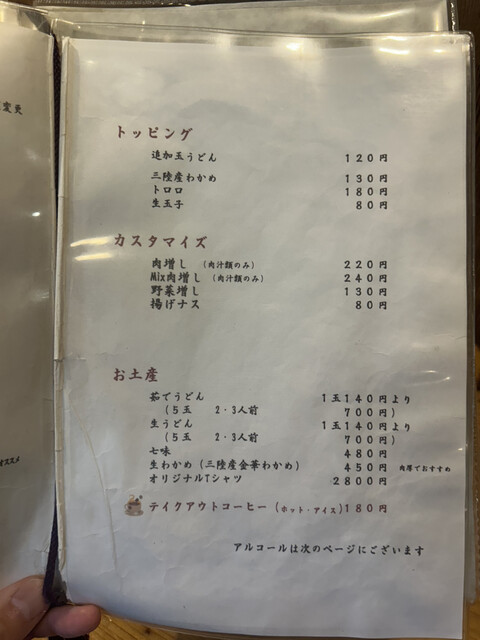 変更
トッピング
追加玉うどん 120円
三陸産わかめ 130円
トロロ 180円
生玉子 80円
カスタマイズ
肉増し (肉汁類のみ) 220円
Mix肉増し (肉汁類のみ) 240円
野菜増し 130円
揚げナス 80円
お土産
茹でうどん 1玉140円より
(5玉 2・3人前 700円)
生うどん 1玉140円より
(5玉 2・3人前 700円)
七味 480円
生わかめ(三陸産金華わかめ) 450円 肉厚でおすすめ
オリジナルTシャツ 2800円
オススメ
テイクアウトコーヒー(ホット・アイス)180円
アルコールは次のページにございます